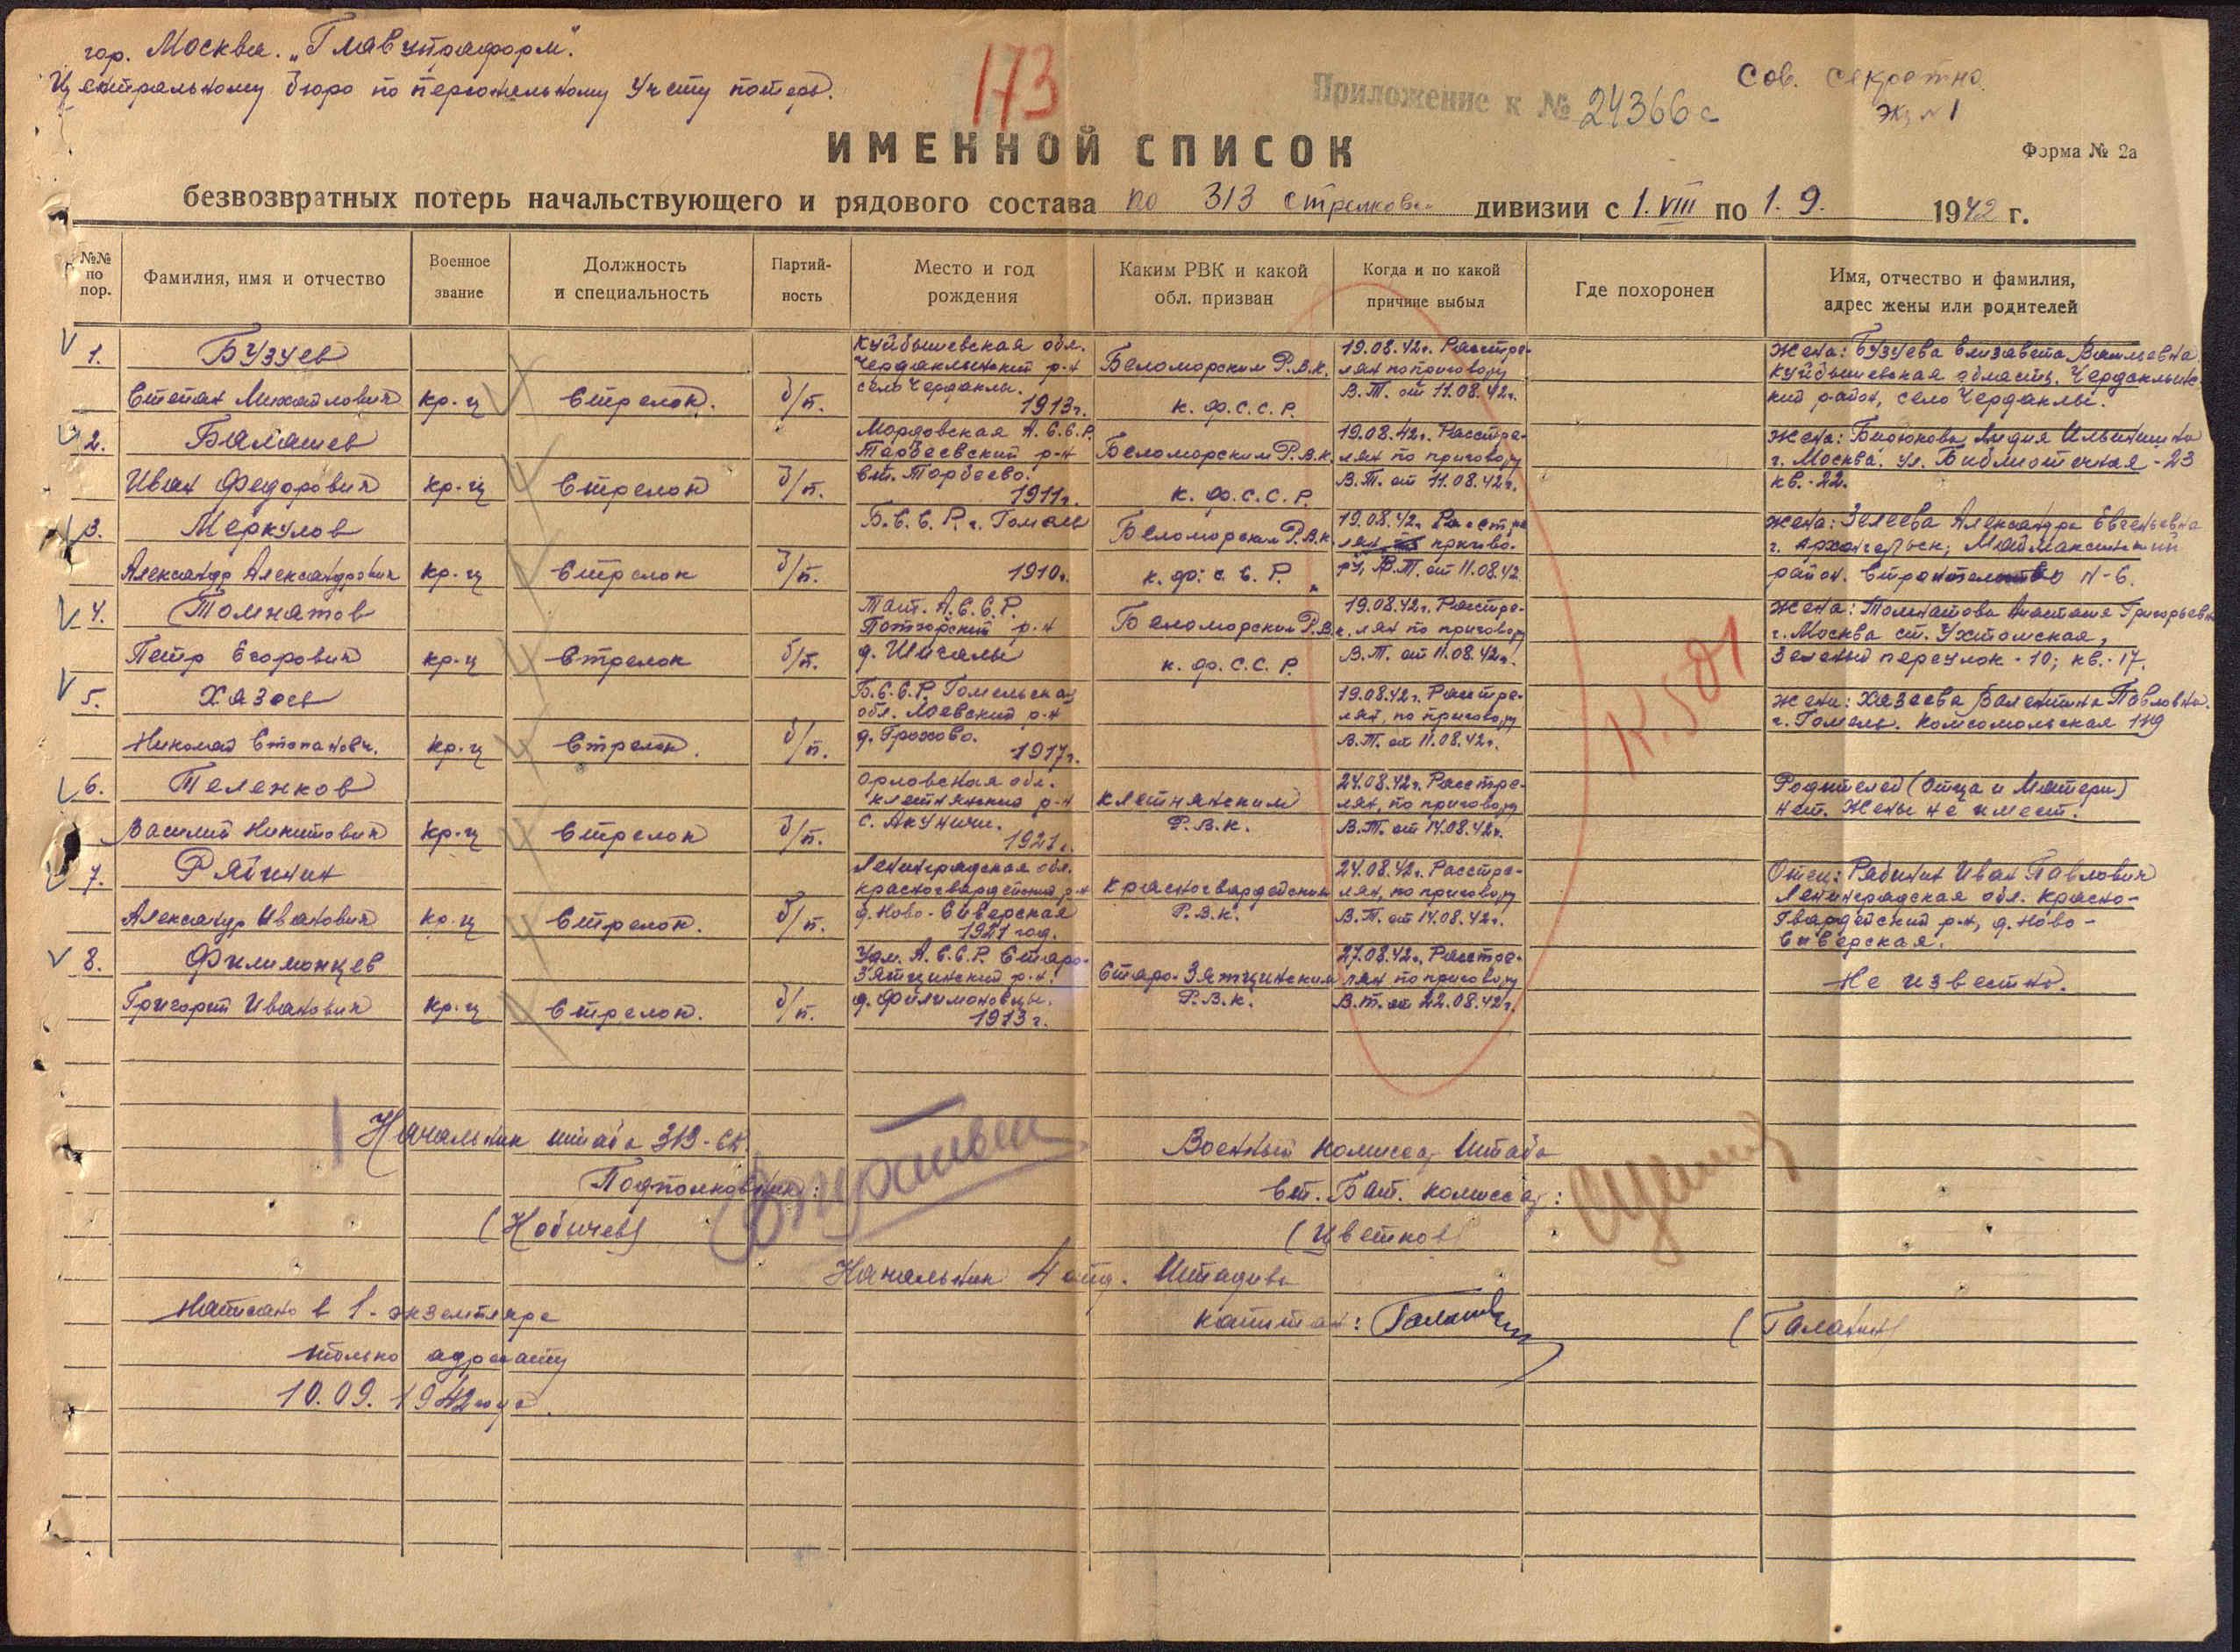 гор. Москва. „Главупраформ".
Центральному бюро по персональному учету потерь.
173
Приложение к № 24366с
Сов. секретно.
экз №1
ИМЕННОЙ СПИСОК
Форма № 2а
безвозвратных потерь начальствующего и рядового состава по 313 стрелковой дивизии с 1.VIII по 1.9. 1942 г.
№№ по пор.
Фамилия, имя и отчество
Военное звание
Должность и специальность
Партий-ность
Место и год рождения
Каким РВК и какой обл. призван
Когда и по какой причине выбыл
Где похоронен
Имя, отчество и фамилия, адрес жены или родителей
1. Бузуев
Степан Михайлович
кр-ц
Стрелок.
б/п.
Куйбышевская обл.
Чердаклинский р-н
село Чердаклы.
1913г.
Беломорским Р.В.К.
К.Ф.С.С.Р.
19.08.42г. Расстре-
лян по приговору
В.Т. от 11.08.42г.
Жена: Бузуева Елизавета Васильевна
Куйбышевская область, Чердаклинс-
кий район, село Чердаклы.
2. Балашев
Иван Федорович
кр-ц
Стрелок
б/п.
Мордовская А.С.С.Р.
Торбеевский р-н
ст. Торбеево.
1911г.
Беломорским Р.В.К.
К.Ф.С.С.Р.
19.08.42г. Расстре-
лян по приговору
В.Т. от 11.08.42г.
Жена: Бирюкова Лидия Ильинишна
г. Москва. ул. Библиотечная - 23
кв. - 22.
3. Меркулов
Александр Александрович
кр-ц
Стрелок
б/п.
Б.С.С.Р. г. Гомель
1910г.
Беломорским Р.В.К.
К.Ф.С.С.Р.
19.08.42г. Расстре
лян, по пригово-
ру, В.Т. от 11.08.42
Жена: Зелеева Александра Евгеньевна
г. Архангельск, Маймаксинский
район. Строительство N-6.
4. Толматов
Петр Егорович
кр-ц
Стрелок
б/п.
Тат. А.С.С.Р.
р-н
д. Шигалы
Беломорским Р.В.К.
К.Ф.С.С.Р.
19.08.42г. Расстре-
лян по приговору
В.Т. от 11.08.42г.
Жена: Толматова Анастасия Григорьевна
г. Москва ст. Ухтомская,
Зеленый переулок - 10; кв. - 17.
5. Хазеев
Николай Степанович.
кр-ц
Стрелок.
б/п.
Б.С.С.Р. Гомельская
обл. Лоевский р-н
д. Грохово.
1917г.
19.08.42г. Расстре-
лян, по приговору
В.Т. от 11.08.42г.
Жена: Хазеева Валентина Павловна.
г. Гомель. Комсомольская 119
6. Теленков
Василий Никитович
кр-ц
Стрелок
б/п.
Орловская обл.
Клетнянский р-н
с. Акуличи.
1921г.
Клетнянским
Р.В.К.
24.08.42г. Расстре-
лян, по приговору
В.Т. от 14.08.42г.
Родителей (Отца и Матери)
нет. Жены не имеет.
7. Рябинин
Александр Иванович
кр-ц
Стрелок.
б/п.
Ленинградская обл.
Красногвардейский р-н
д. Ново-Сиверская
1921 год.
Красногвардейским
Р.В.К.
24.08.42г. Расстре-
лян, по приговору
В.Т. от 14.08.42г.
Отец: Рябинин Иван Павлович
Ленинградская обл. Красно-
гвардейский р-н, д. Ново-
Сиверская.
8. Филимонцев
Григорий Иванович
кр-ц
Стрелок.
б/п.
Удм. А.С.С.Р. Старо-
Зятцинский р-н.
д. Филимоновцы.
1913г.
Старо-Зятцинским
Р.В.К.
27.08.42г. Расстре-
лян по приговору
В.Т. от 22.08.42г.
Не известно.
К.501
Начальник штаба 313-СД
Подполковник:
(Нобичев)
Военный комиссар Штаба
Ст. Бат. комиссар:
(Цветков)
Начальник 4 отд. Штадива
капитан:
(Галанин)
Написано в 1-экземпляре
только адресату
10.09.1942 года.